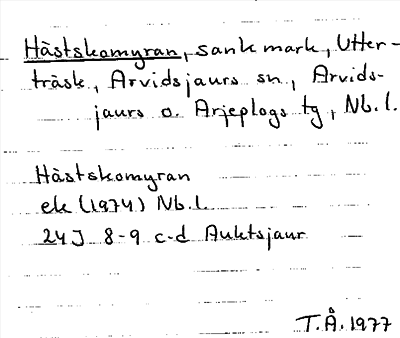 Hästskomyran, sank mark, Utter-
träsk, Arvidsjaurs sn, Arvids-
jaurs o. Arjeplogs tg, Nb. l.
Hästskomyran
ek (1974) Nb. l.
24J 8-9 c-d Auktsjaur
T.Å. 1977